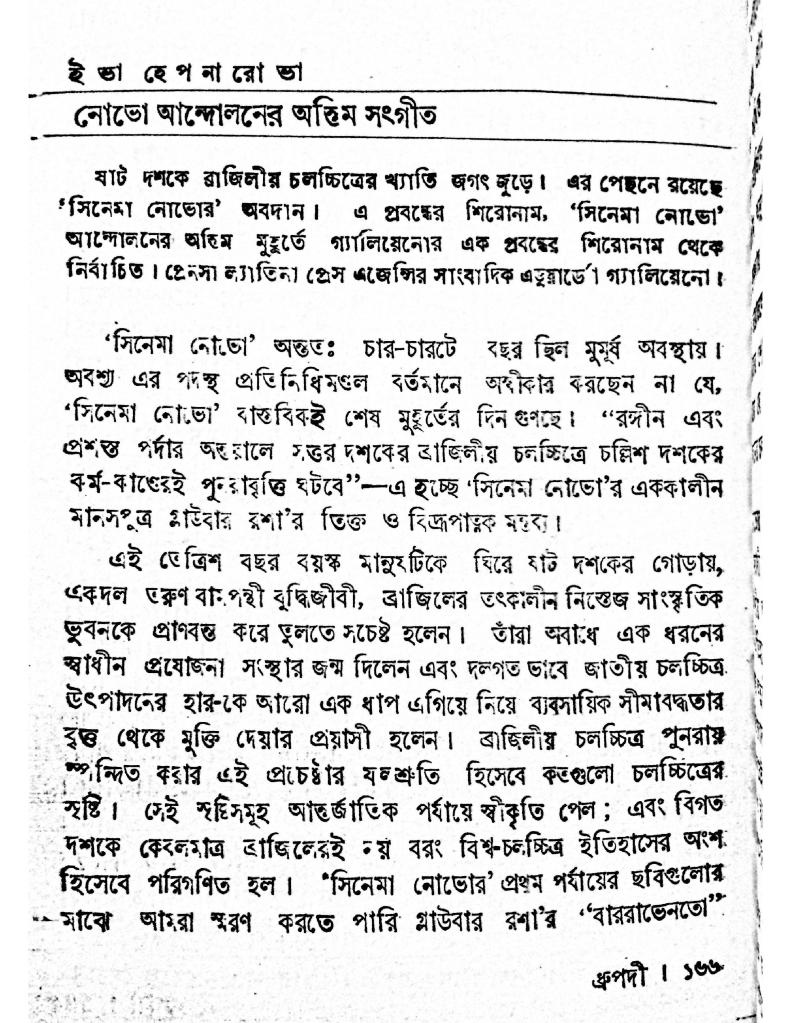 ইভা হেপনারোভা
নোভো আন্দোলনের অন্তিম সংগীত
ষাট দশকে ব্রাজিলীয় চলচ্চিত্রের খ্যাতি জগৎ জুড়ে। এর পেছনে রয়েছে
‘সিনেমা নোভোর’ অবদান। এ প্রবন্ধের শিরোনাম, ‘সিনেমা নোভো’
আন্দোলনের অন্তিম মুহূর্তে গ্যালিয়েনোর এক প্রবন্ধের শিরোনাম থেকে
নির্বাচিত। প্রেনসা ল্যাতিনা প্রেস এজেন্সির সাংবাদিক এডুয়ার্ডো গ্যালিয়েনো।
‘সিনেমা নোভো’ অন্ততঃ চার-চারটে বছর ছিল মুমূর্ষ অবস্থায়।
অবশ্য এর পদস্থ প্রতিনিধিমণ্ডল বর্তমানে অস্বীকার করছেন না যে,
‘সিনেমা নোভো’ বাস্তবিকই শেষ মুহূর্তের দিন গুণছে। “রঙ্গীন এবং
প্রশস্ত পর্দার অন্তরালে সত্তর দশকের ব্রাজিলীয় চলচ্চিত্রে চল্লিশ দশকের
কর্ম-কাণ্ডেরই পুনরাবৃত্তি ঘটবে”—এ হচ্ছে ‘সিনেমা নোভো’র এককালীন
মানসপুত্র গ্লাউবার রশা’র তিক্ত ও বিদ্রূপাত্মক মন্তব্য।
এই তেত্রিশ বছর বয়স্ক মানুষটিকে ঘিরে ষাট দশকের গোড়ায়,
একদল তরুণ বামপন্থী বুদ্ধিজীবী, ব্রাজিলের তৎকালীন নিস্তেজ সাংস্কৃতিক
ভুবনকে প্রাণবন্ত করে তুলতে সচেষ্ট হলেন। তাঁরা অবাধে এক ধরনের
স্বাধীন প্রযোজনা সংস্থার জন্ম দিলেন এবং দলগত ভাবে জাতীয় চলচ্চিত্র
উৎপাদনের হার-কে আরো এক ধাপ এগিয়ে নিয়ে ব্যবসায়িক সীমাবদ্ধতার
বৃত্ত থেকে মুক্তি দেয়ার প্রয়াসী হলেন। ব্রাজিলীয় চলচ্চিত্র পুনরায়
স্পন্দিত করার এই প্রচেষ্টার ফলশ্রুতি হিসেবে কতগুলো চলচ্চিত্রের
সৃষ্টি। সেই সৃষ্টিসমূহ আন্তর্জাতিক পর্যায়ে স্বীকৃতি পেল; এবং বিগত
দশকে কেবলমাত্র ব্রাজিলেরই নয় বরং বিশ্ব-চলচ্চিত্র ইতিহাসের অংশ
হিসেবে পরিগণিত হল। ‘সিনেমা নোভোর’ প্রথম পর্যায়ের ছবিগুলোর
মাঝে আমরা স্মরণ করতে পারি গ্লাউবার রশা’র “বাররাভেনতো”
ধ্রুপদী। ১৬৬